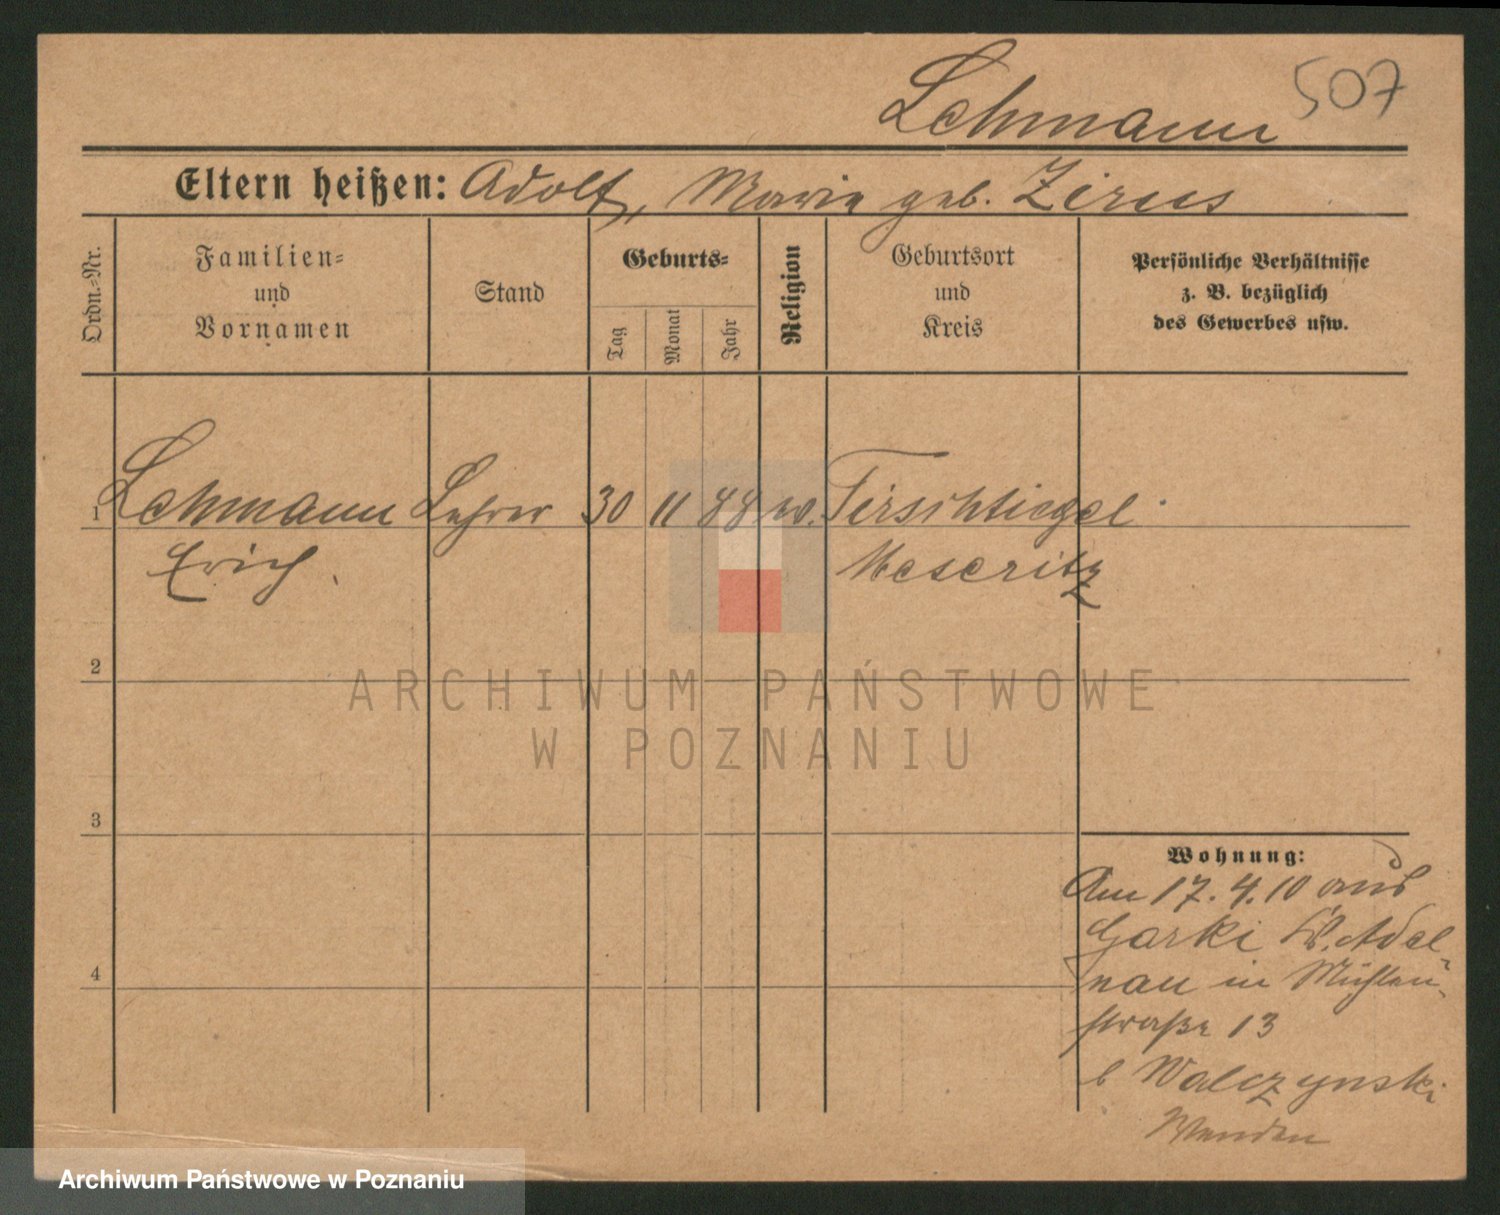 Lehmann 507
Eltern heißen: Adolf, Marie geb. Zirus
Ordn.-Nr.
Familien-
und
Vornamen
Stand
Geburts-
Tag
Monat
Jahr
Religion
Geburtsort
und
Kreis
Persönliche Verhältnisse
z. B. bezüglich
des Gewerbes usw.
1 Lehmann Lehrer 30 11 88 ev. Tirschtiegel
Erich Meseritz
2
3
4
Wohnung:
Am 17.4.10 aus
Gorki Kr. Adel-
nau in Mühlen-
straße 13
b Walczynski
ARCHIWUM PAŃSTWOWE
W POZNANIU
Archiwum Państwowe w Poznaniu